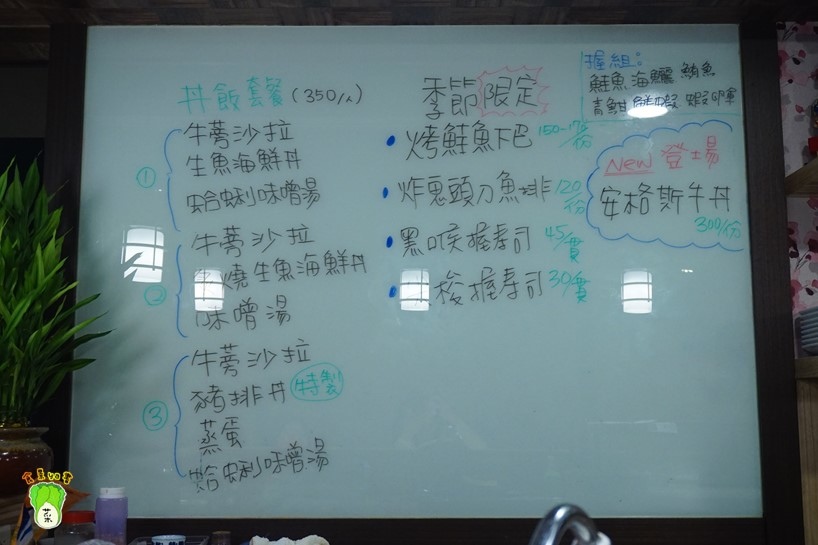 丼飯套餐(350/人)
①
牛蒡沙拉
生魚海鮮丼
蛤蜊味噌湯
②
牛蒡沙拉
燒生魚海鮮丼
味噌湯
③
牛蒡沙拉
豬排丼 特製
蒸蛋
蛤蜊味噌湯
季節限定
烤鮭魚下巴 150~
炸鬼頭刀魚排 120/份
黑喉握壽司 45/貫
梭握壽司 30/貫
握組:
鮭魚 海鱺 鮪魚
青魽 蝦卵軍
New 登場
安格斯牛丼
300/份
菜